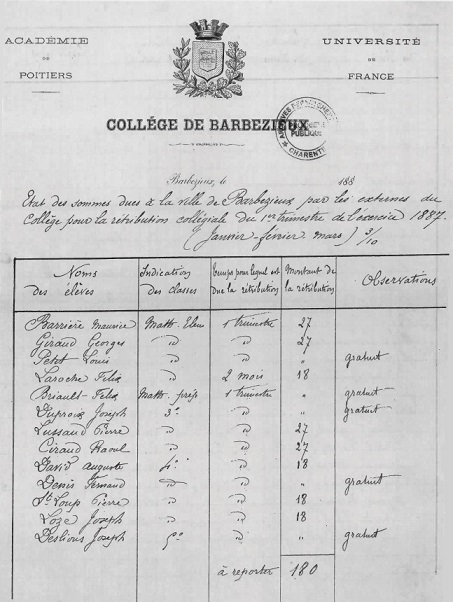 ACADÉMIE
DE
POITIERS
UNIVERSITÉ
DE
FRANCE
ARCHIVES
PUBLIQUE
CHARENTE
COLLÉGE DE BARBEZIEUX
Barbezieux, le 188
Etat des sommes dues à la ville de Barbezieux par les externes du
Collège pour la rétribution collégiale du 1er trimestre de l'exercice 1887.
(Janvier-février-mars) 3/10
Noms des élèves Indication des classes temps pour lequel est due la rétribution Montant de la rétribution Observations
Barrière Maurice Math. Elem 1 trimestre 27
Giraud Georges " " 27
Petit Louis " " " gratuit
Laroche Felix " 2 mois 18
Briault Felix Math. prép 1 trimestre " gratuit
Duproux Joseph 3e " " gratuit
Lussaud Pierre " " 27
Giraud Raoul " " 27
David Auguste 4e " 18
Denis Fernand " " " gratuit
St Loup Pierre " " 18
Loze Joseph " " 18
Deslions Joseph 5e " " gratuit
à reporter 180